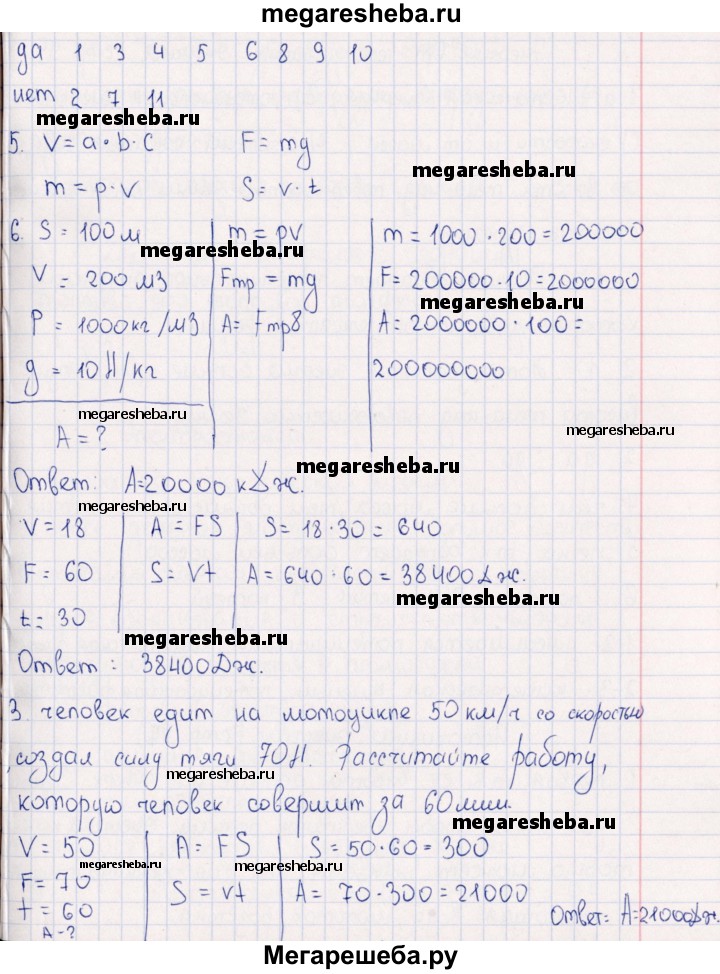 megaresheba.ru
да 1 3 4 5 6 8 9 10
нет 2 7 11
megaresheba.ru
5. V = a · b · c F = mg
megaresheba.ru
m = ρ · V S = v · t
6. S = 100 м m = ρV m = 1000 · 200 = 200000
megaresheba.ru
V = 200 м3 Fтр = mg F = 200000 · 10 = 2000000
megaresheba.ru
P = 1000 кг/м3 A = Fтр8 A = 2000000 · 100 =
g = 10 Н/кг 200000000
megaresheba.ru
megaresheba.ru
A = ?
megaresheba.ru
Ответ: A = 20000 кДж.
megaresheba.ru
V = 18 A = FS S = 18 · 30 = 640
F = 60 S = Vt A = 640 · 60 = 38400 Дж.
megaresheba.ru
t = 30
megaresheba.ru
Ответ: 38400 Дж.
3. человек едит на мотоцикле 50 км/ч со скоростью
, создал силу тяги 70 Н. Рассчитайте работу,
megaresheba.ru
которую человек совершит за 60 мин.
megaresheba.ru
V = 50 A = FS S = 50 · 60 = 300
megaresheba.ru
F = 70 S = vt A = 70 · 300 = 21000
t = 60 Ответ: A = 21000 Дж.
A - ?
Мегарешеба.ру